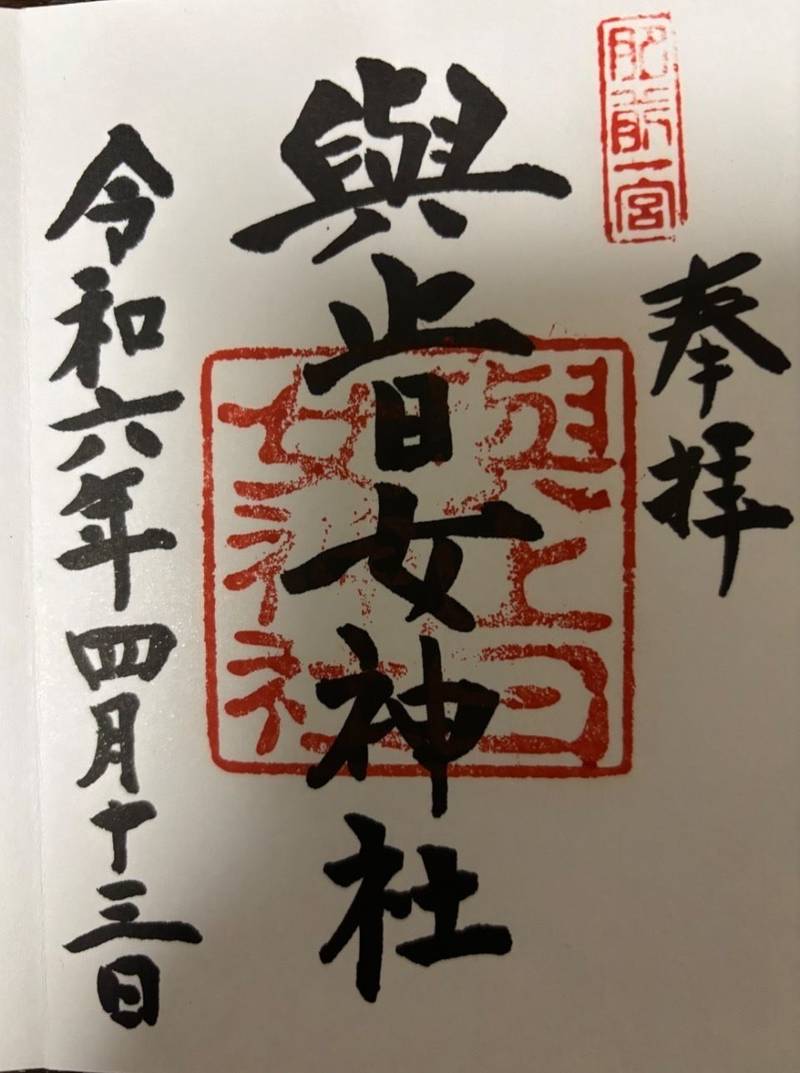 肥前一宮
奉拝
與止日女神社
與止日女神社
令和六年四月十三日